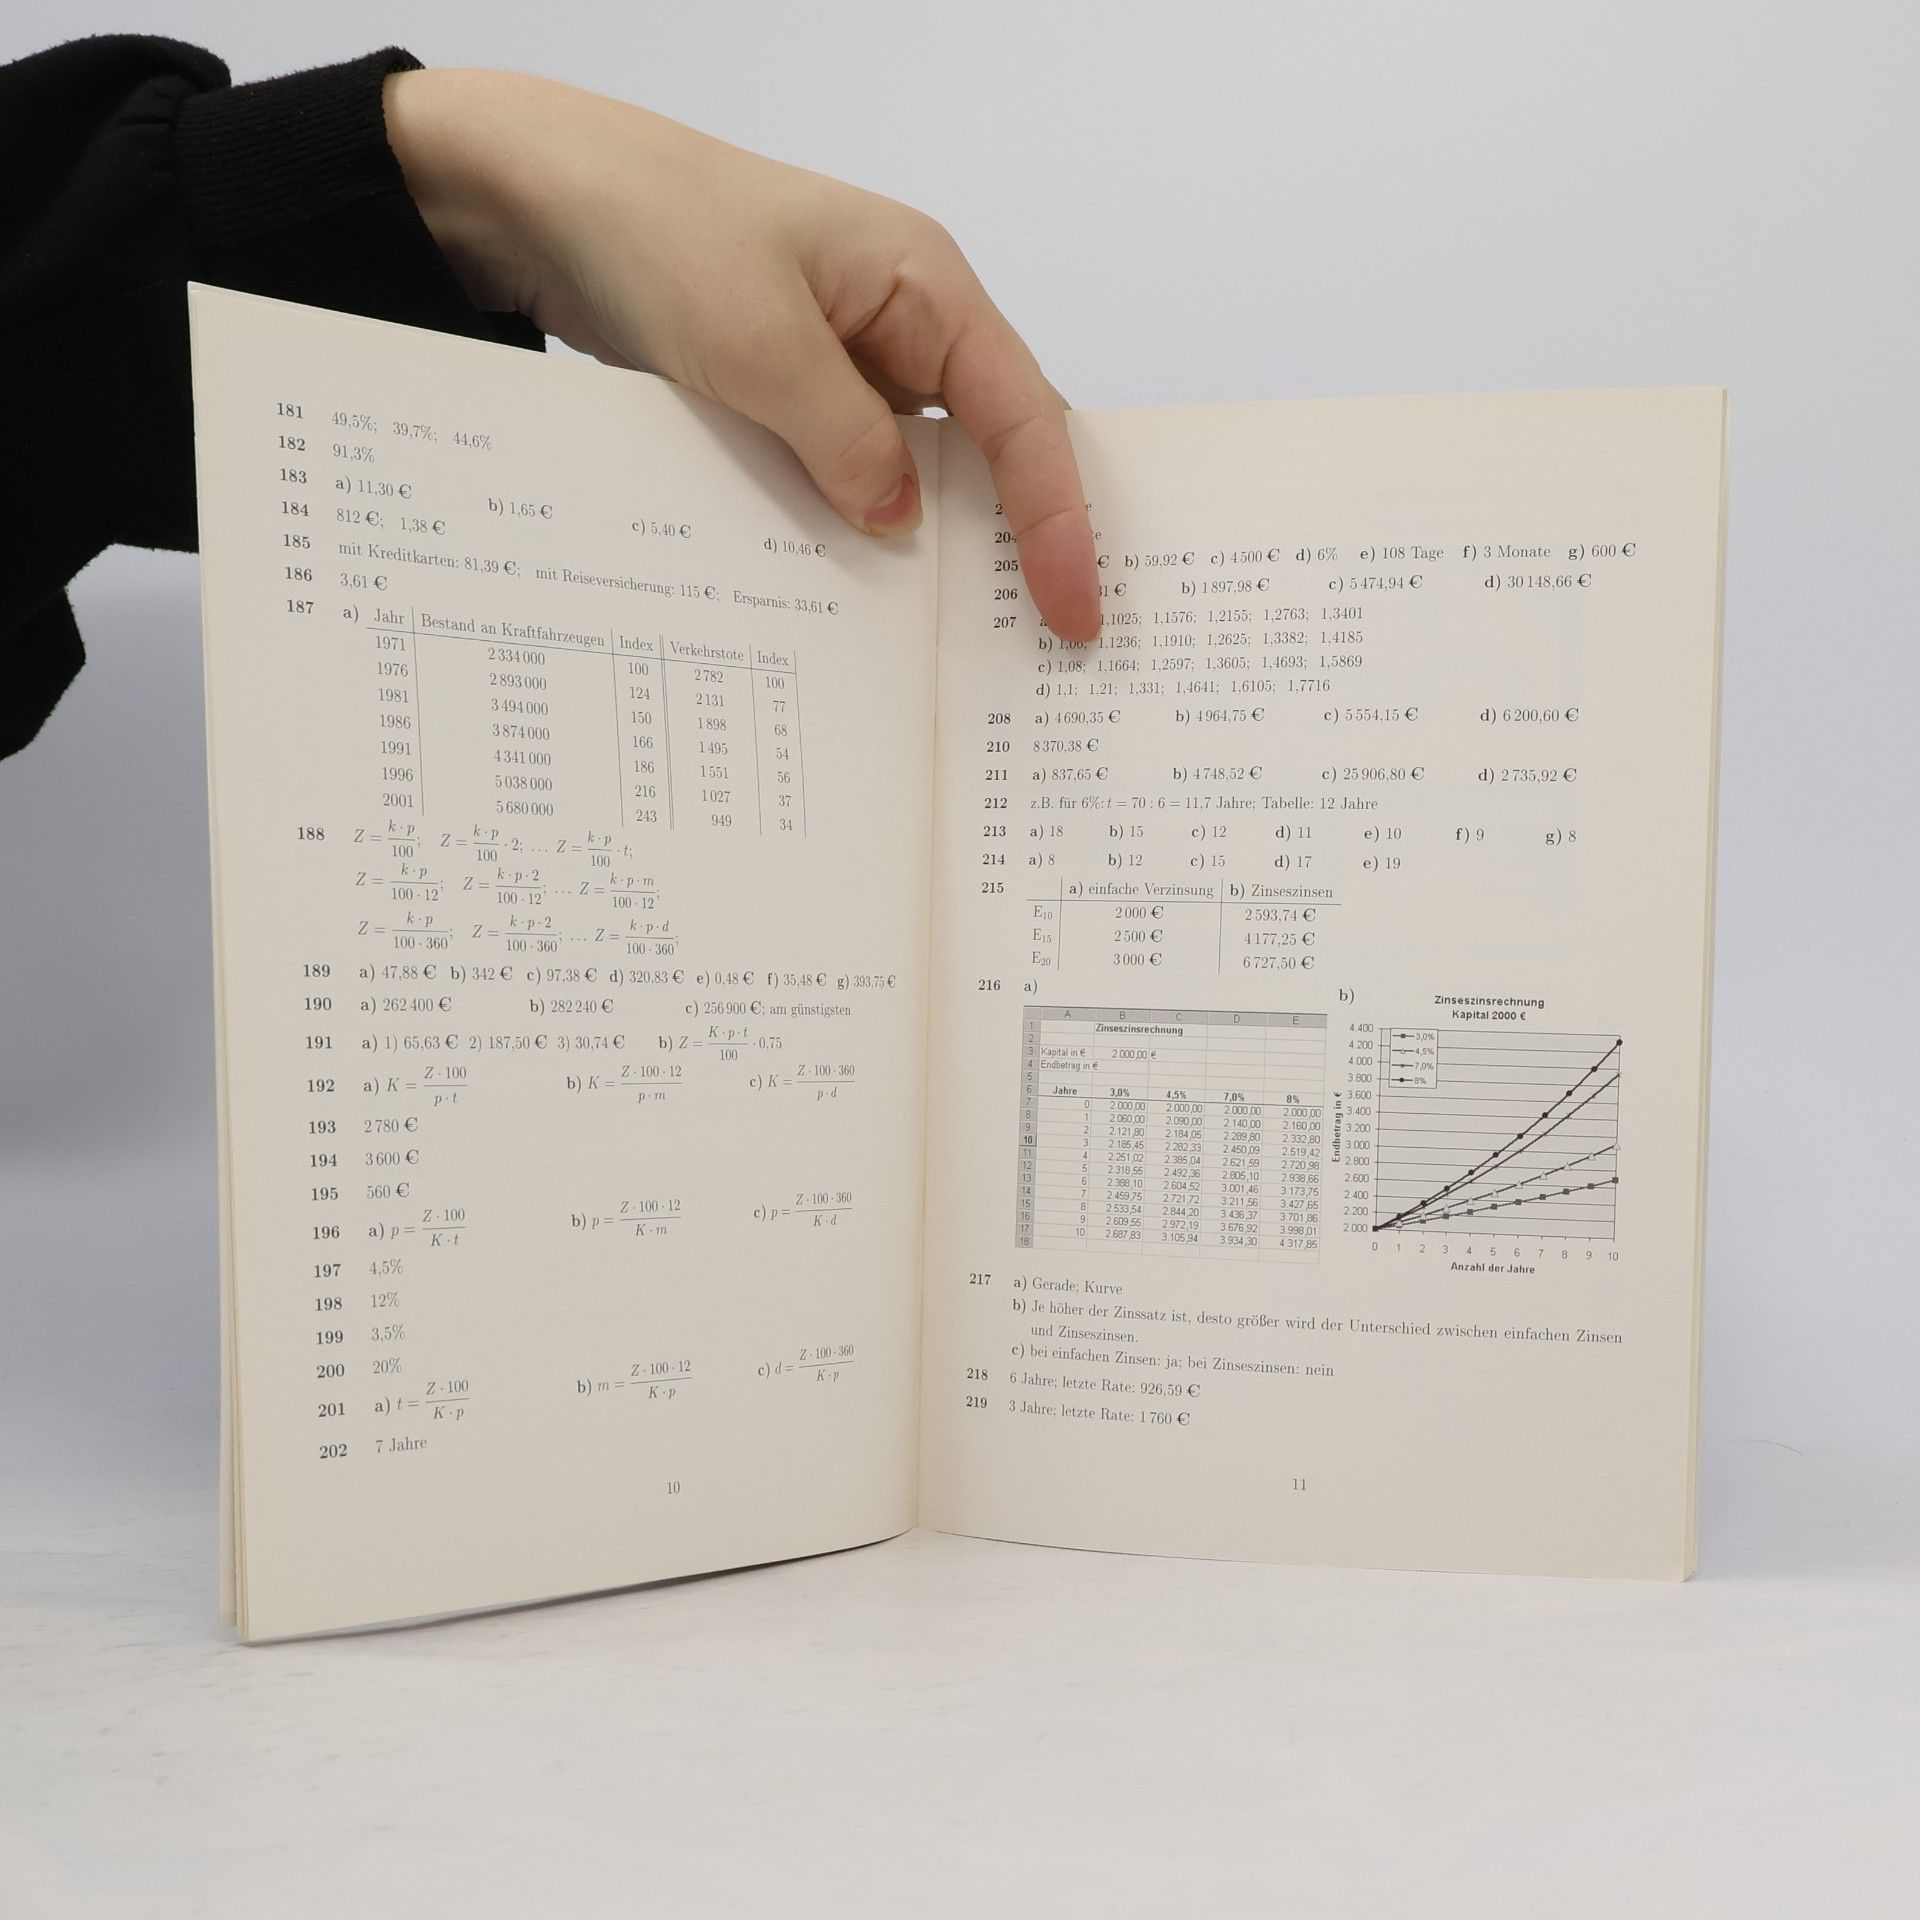 181 49,5%; 39,7%; 44,6%
182 91,3%
183 a) 11,30 € b) 1,65 € c) 5,40 € d) 10,46 €
184 812 €; 1,38 €
185 mit Kreditkarten: 81,39 €; mit Reiseversicherung: 115 €; Ersparnis: 33,61 €
186 3,61 €
187 a) Jahr Bestand an Kraftfahrzeugen Index Verkehrstote Index
1971 2 334 000 100 2 782 100
1976 2 893 000 124 2 131 77
1981 3 494 000 150 1 898 68
1986 3 874 000 166 1 495 54
1991 4 341 000 186 1 551 56
1996 5 038 000 216 1 027 37
2001 5 680 000 243 949 34
188 Z = k · p / 100; Z = k · p / 100 · 2; … Z = k · p / 100 · t;
Z = k · p / 100 · 12; Z = k · p · 2 / 100 · 12; … Z = k · p · m / 100 · 12;
Z = k · p / 100 · 360; Z = k · p · 2 / 100 · 360; … Z = k · p · d / 100 · 360;
189 a) 47,88 € b) 342 € c) 97,38 € d) 320,83 € e) 0,48 € f) 35,48 € g) 393,75 €
190 a) 262 400 € b) 282 240 € c) 256 900 €; am günstigsten
191 a) 1) 65,63 € 2) 187,50 € 3) 30,74 € b) Z = K · p · t / 100 · 0,75
192 a) K = Z · 100 / p · t b) K = Z · 100 · 12 / p · m c) K = Z · 100 · 360 / p · d
193 2 780 €
194 3 600 €
195 560 €
196 a) p = Z · 100 / K · t b) p = Z · 100 · 12 / K · m c) p = Z · 100 · 360 / K · d
197 4,5%
198 12%
199 3,5%
200 20%
201 a) t = Z · 100 / K · p b) m = Z · 100 · 12 / K · p c) d = Z · 100 · 360 / K · p
202 7 Jahre
10
204
205 € b) 59,92 € c) 4 500 € d) 6% e) 108 Tage f) 3 Monate g) 600 €
206 € b) 1 897,98 € c) 5 474,94 € d) 30 148,66 €
207 1,1025; 1,1576; 1,2155; 1,2763; 1,3401
b) 1,06; 1,1236; 1,1910; 1,2625; 1,3382; 1,4185
c) 1,08; 1,1664; 1,2597; 1,3605; 1,4693; 1,5869
d) 1,1; 1,21; 1,331; 1,4641; 1,6105; 1,7716
208 a) 4 690,35 € b) 4 964,75 € c) 5 554,15 € d) 6 200,60 €
210 8 370,38 €
211 a) 837,65 € b) 4 748,52 € c) 25 906,80 € d) 2 735,92 €
212 z.B. für 6%: t = 70 : 6 = 11,7 Jahre; Tabelle: 12 Jahre
213 a) 18 b) 15 c) 12 d) 11 e) 10 f) 9 g) 8
214 a) 8 b) 12 c) 15 d) 17 e) 19
215 a) einfache Verzinsung b) Zinseszinsen
E10 2 000 € 2 593,74 €
E15 2 500 € 4 177,25 €
E20 3 000 € 6 727,50 €
216 a)
A B C D E
1 Zinseszinsrechnung
2
3 Kapital in € 2 000,00 €
4 Endbetrag in €
5
6 Jahre 3,0% 4,5% 7,0% 8%
7 0 2.000,00 2.000,00 2.000,00 2.000,00
8 1 2.060,00 2.090,00 2.140,00 2.160,00
9 2 2.121,80 2.184,05 2.289,80 2.332,80
10 3 2.185,45 2.282,33 2.450,09 2.519,42
11 4 2.251,02 2.385,04 2.621,59 2.720,98
12 5 2.318,55 2.492,36 2.805,10 2.938,66
13 6 2.388,10 2.604,52 3.001,46 3.173,75
14 7 2.459,75 2.721,72 3.211,56 3.427,65
15 8 2.533,54 2.844,20 3.436,37 3.701,86
16 9 2.609,55 2.972,19 3.676,92 3.998,01
17 10 2.687,83 3.105,94 3.934,30 4.317,85
18
b)
Zinseszinsrechnung
Kapital 2000 €
3,0%
4,5%
7,0%
8%
Endbetrag in €
4 400
4 200
4 000
3 800
3 600
3 400
3 200
3 000
2 800
2 600
2 400
2 200
2 000
0 1 2 3 4 5 6 7 8 9 10
Anzahl der Jahre
217 a) Gerade; Kurve
b) Je höher der Zinssatz ist, desto größer wird der Unterschied zwischen einfachen Zinsen
und Zinseszinsen.
c) bei einfachen Zinsen: ja; bei Zinseszinsen: nein
218 6 Jahre; letzte Rate: 926,59 €
219 3 Jahre; letzte Rate: 1 760 €
11